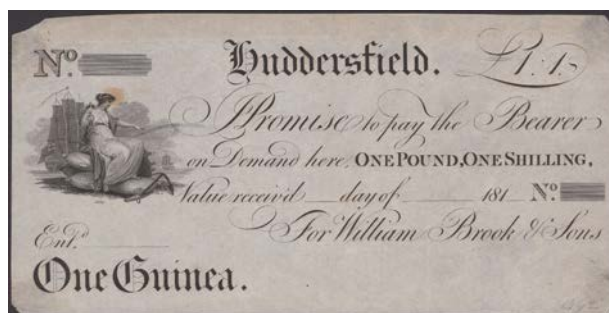 No. Huddersfield. £1:1:-
I Promise to pay the Bearer
on Demand here, ONE POUND, ONE SHILLING,
Value receiv'd day of 181 No.
Ent.d For William Brook & Sons
One Guinea.